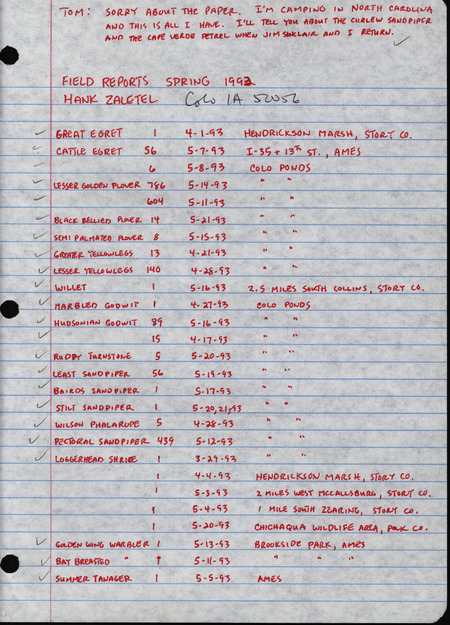 TOM: SORRY ABOUT THE PAPER. I'M CAMPING IN NORTH CAROLINA
AND THIS IS ALL I HAVE. I'LL TELL YOU ABOUT THE CURLEW SANDPIPER
AND THE CAPE VERDE PETREL WHEN JIM SINCLAIR AND I RETURN.
FIELD REPORTS SPRING 1993
HANK ZALETEL COLO IA 50056
GREAT EGRET 1 4-1-93 HENDRICKSON MARSH, STORY CO.
CATTLE EGRET 56 5-7-93 I-35 + 13TH ST., AMES
6 5-8-93 COLO PONDS
LESSER GOLDEN PLOVER 786 5-14-93 " "
604 5-11-93 " "
BLACK BELLIED PLOVER 14 5-21-93 " "
SEMI PALMATED PLOVER 8 5-15-93 " "
GREATER YELLOWLEGS 13 4-21-93 " "
LESSER YELLOWLEGS 140 4-28-93 " "
WILLET 1 5-16-93 2.5 MILES SOUTH COLLINS, STORY CO.
MARBLED GODWIT 1 4-27-93 COLO PONDS
HUDSONIAN GODWIT 89 5-16-93 " "
15 4-17-93 " "
RUDDY TURNSTONE 5 5-20-93 " "
LEAST SANDPIPER 56 5-19-93 " "
BAIRDS SANDPIPER 1 5-17-93 " "
STILT SANDPIPER 1 5-20,21,93 " "
WILSON PHALAROPE 5 4-28-93 " "
PECTORAL SANDPIPER 439 5-12-93 " "
LOGGERHEAD SHRIKE 1 3-29-93 " "
1 4-4-93 HENDRICKSON MARSH, STORY CO.
1 5-3-93 2 MILES WEST MCCALLSBURG, STORY CO.
1 5-4-93 1 MILE SOUTH ZEARING, STORY CO.
1 5-20-93 CHICHAQUA WILDLIFE AREA, POLK CO.
GOLDEN WING WARBLER 1 5-13-93 BROOKSIDE PARK, AMES
BAY BREASTED " 1 5-11-93 " " "
SUMMER TANAGER 1 5-5-93 AMES